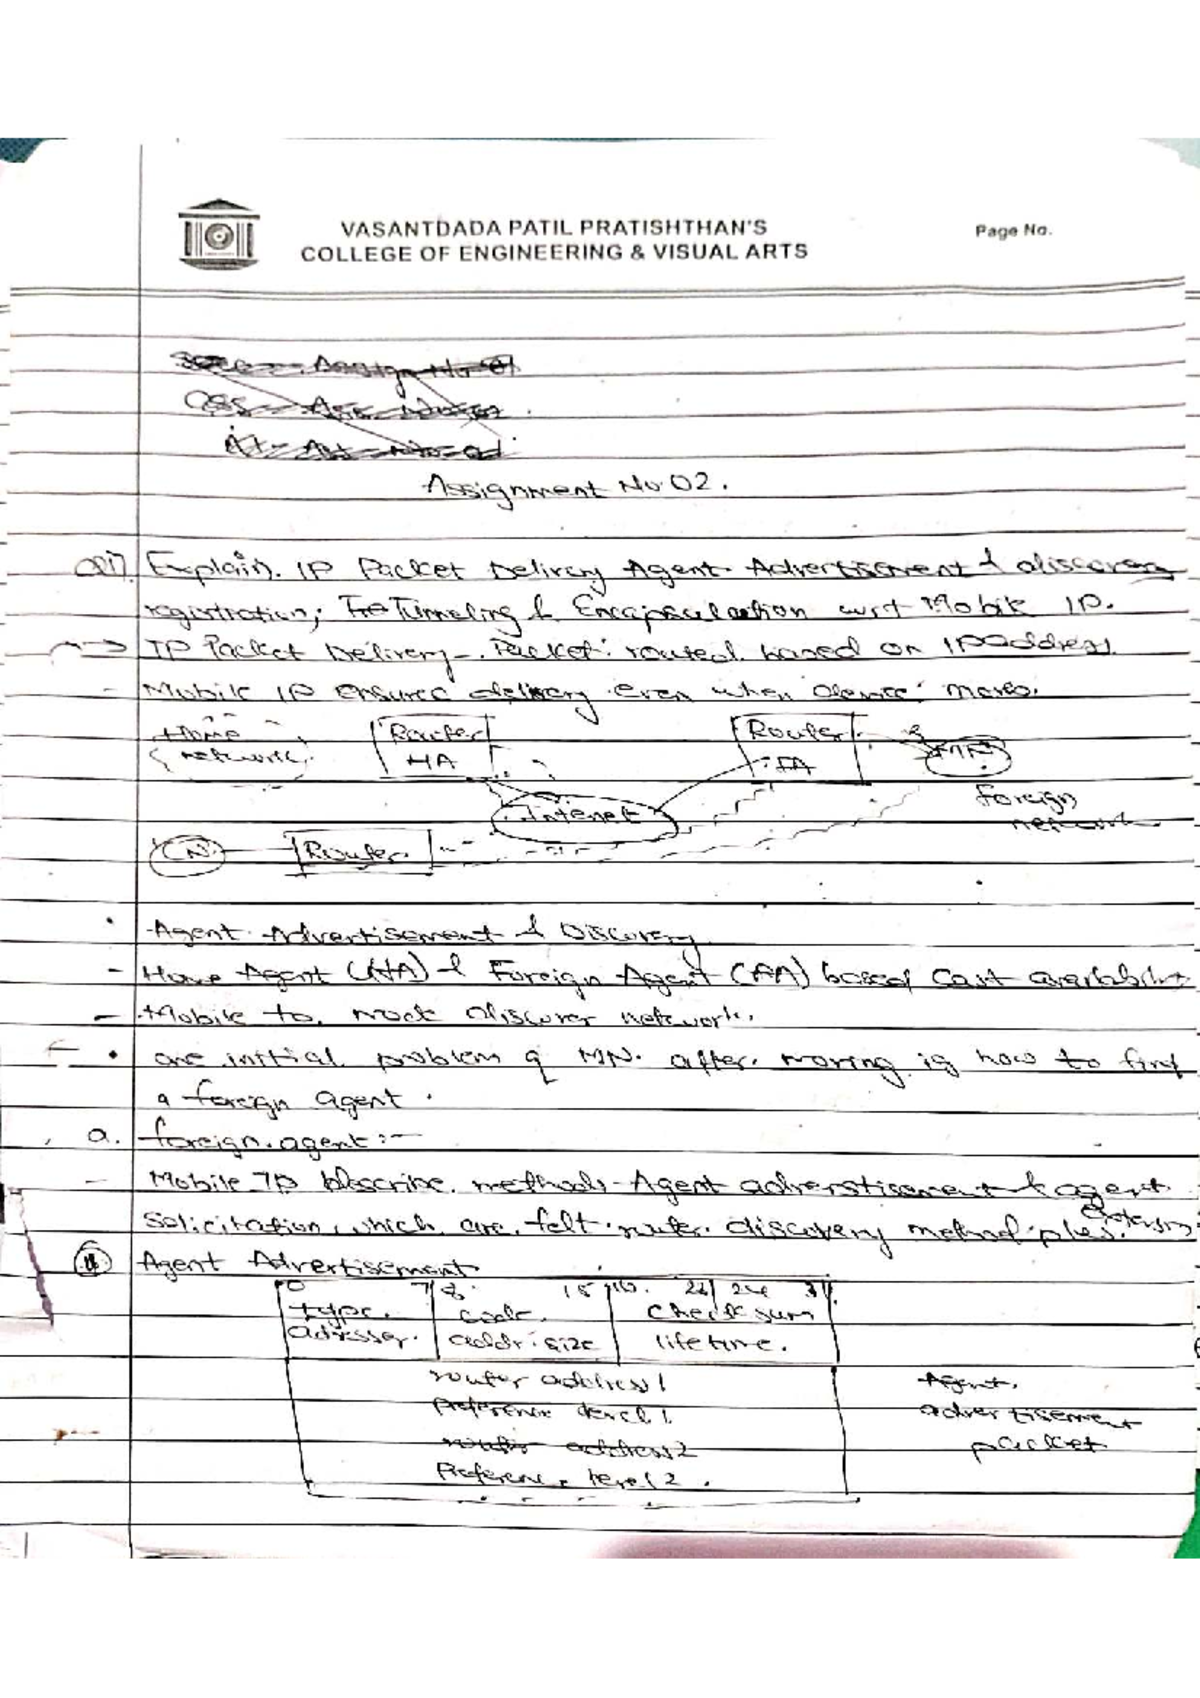 VASANTDADA PATIL PRATISHTHAN'S
COLLEGE OF ENGINEERING & VISUAL ARTS
Page No.
Assignment No 02.
Q1] Explain. IP Packet Delivery Agent Advertisement & discovery
registration; Tunneling & Encapsulation wrt Mobile IP.
→ IP Packet Delivery - Packet routed based on IP address
- Mobile IP ensures delivery even when device moves.
Home network
Router HA
Router FA
MN
foreign network
Internet
CN
Router
Agent Advertisement & Discovery
- Home Agent (HA) & Foreign Agent (FA)
- Mobile to discover network.
• one initial problem of MN. after moving is how to find
a foreign agent.
a. foreign agent :-
- Mobile IP methods Agent & agent
solicitation, which are router discovery method plus extension
Agent Advertisement
0 7 8 15 16 24
type code checksum
addr. size lifetime.
router address 1
Preference level 1
router address 2
Preference level 2.
Agent
advertisement
packet